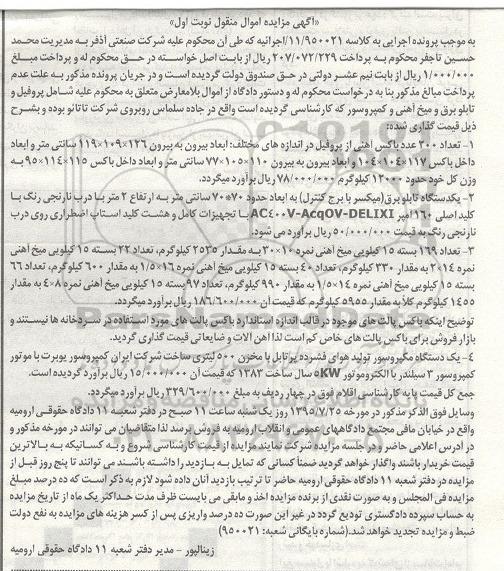 «آگهی مزایده اموال منقول نوبت اول»
به موجب پرونده اجرایی به کلاسه ۱۱/۹۵۰۰۲۱/اجراییه که طی آن محکوم علیه شرکت صنعتی آذفر به مدیریت محمد
حسین تاجفر محکوم به پرداخت ۲۰۷/۰۷۲/۲۲۹ ریال از بابت اصل خواسته در حق محکوم له و پرداخت مبلغ
۱/۰۰۰/۰۰۰ ریال از بابت نیم عشر دولتی در حق صندوق دولت گردیده است و در جریان پرونده مذکور به علت عدم
پرداخت مبالغ مذکور بنا به درخواست محکوم له و دستور دادگاه از اموال بلامعارض متعلق به محکوم علیه شامل پروفیل و
تابلو برق و میخ آهنی و کمپروسور که کارشناسی گردیده است واقع در جاده سلماس روبروی شرکت تاتائو بوده و بشرح
ذیل قیمت گذاری شده:
۱- تعداد ۳۰۰ عدد باکس آهنی از پروفیل در اندازه های مختلف: ابعاد بیرون به بیرون ۱۲۶×۱۰۹×۱۱۹ سانتی متر و ابعاد
داخل باکس ۱۱۷×۱۰۴×۱۰۴ و ابعاد بیرون به بیرون ۱۱۰×۱۰۵×۷۷ سانتی متر و ابعاد داخل باکس ۱۱۵×۱۱۴×۹۵ به
وزن کل خود حدود ۱۲۰۰۰ کیلوگرم ۷۸/۰۰۰/۰۰۰ ریال برآورد میگردد.
۲- یکدستگاه تابلو برق(میکسر با برج کنترل) به ابعاد حدود ۷۰*۷۰ سانتی متر به ارتفاع ۲ متر با درب نارنجی رنگ با
کلید اصلی ۱۶۰ امپر AC۴۰۰V-AcqOV-DELIXI با تجهیزات کامل و هشت کلید استاپ اضطراری روی درب
نارنجی رنگ به قیمت ۵۰/۰۰۰/۰۰۰ ریال برآورد می شود.
۳- تعداد ۱۶۹ بسته ۱۵ کیلویی میخ آهنی نمره ۱۰×۳۰ به مقدار ۲۵۳۵ کیلوگرم، تعداد ۲۲ بسته ۱۵ کیلویی میخ آهنی
نمره ۱۴×۲ به مقدار ۳۳۰ کیلوگرم، تعداد ۴۰ بسته ۱۵ کیلویی میخ آهنی نمره ۱۶×۱/۵ به مقدار ۶۰۰ کیلوگرم، تعداد ۶۶
بسته ۱۵ کیلویی میخ آهنی نمره ۱۴×۱/۵ به مقدار ۹۹۰ کیلوگرم، تعداد ۹۷ بسته ۱۵ کیلویی میخ آهنی نمره ۸×۴ به مقدار
۱۴۵۵ کیلوگرم کلا به مقدار ۵۹۵۵ کیلوگرم که قیمت آن ۱۸۶/۶۰۰/۰۰۰ ریال برآورد میگردد.
توضیح اینکه باکس پالت های موجود در قالب اندازه استاندارد باکس پالت های مورد استفاده در سردخانه ها نیستند و
بازار فروش برای باکس پالت های خاص کم است لذا آهن آلات و ضایعاتی قیمت گذاری گردید.
۴- یک دستگاه مکپروسور تولید هوای فشرده پرتابل با مخزن ۵۰۰ لیتری ساخت شرکت ایران کمپروسور یوبرت با موتور
کمپروسور ۳ سیلندر با الکتروموتور ۵KW سال ساخت ۱۳۸۳ که قیمت آن ۱۵/۰۰۰/۰۰۰ ریال برآورد گردیده است.
جمع کل قیمت پایه کارشناسی اقلام فوق در چهار ردیف به مبلغ ۳۲۹/۶۰۰/۰۰۰ ریال برآورد میگردد.
وسایل فوق الذکر مذکور در مورخه ۱۳۹۵/۷/۲۵ روز یک شنبه ساعت ۱۱ صبح در دفتر شعبه ۱۱ دادگاه حقوقی ارومیه
واقع در خیابان مافی مجتمع دادگاههای عمومی و انقلاب ارومیه به فروش برسد لذا متقاضیان می توانند در مورخه مذکور و
در آدرس اعلامی حاضر و در جلسه مزایده شرکت نمایند مزایده از قیمت کارشناسی شروع و به کسانیکه به بالاترین
قیمت خریدار باشند واگذار خواهد گردید ضمناً کسانی که تمایل به بازدید را داشته باشند می توانند تا پنج روز قبل از
مزایده در دفتر شعبه ۱۱ دادگاه حقوقی ارومیه حاضر تا ترتیب بازدید آنان داده شود لازم به ذکر است که ده درصد مبلغ
مزایده فی المجلس و به صورت نقدی از برنده مزایده اخذ و مابقی می بایست ظرف مدت حداکثر یک ماه از تاریخ مزایده
به حساب سپرده دادگستری تودیع گردد در غیر این صورت ده درصد واریزی پس از کسر هزینه های مزایده به نفع دولت
ضبط و مزایده تجدید خواهد شد.(شماره بایگانی شعبه: ۹۵۰۰۲۱)
زینالپور - مدیر دفتر شعبه ۱۱ دادگاه حقوقی ارومیه